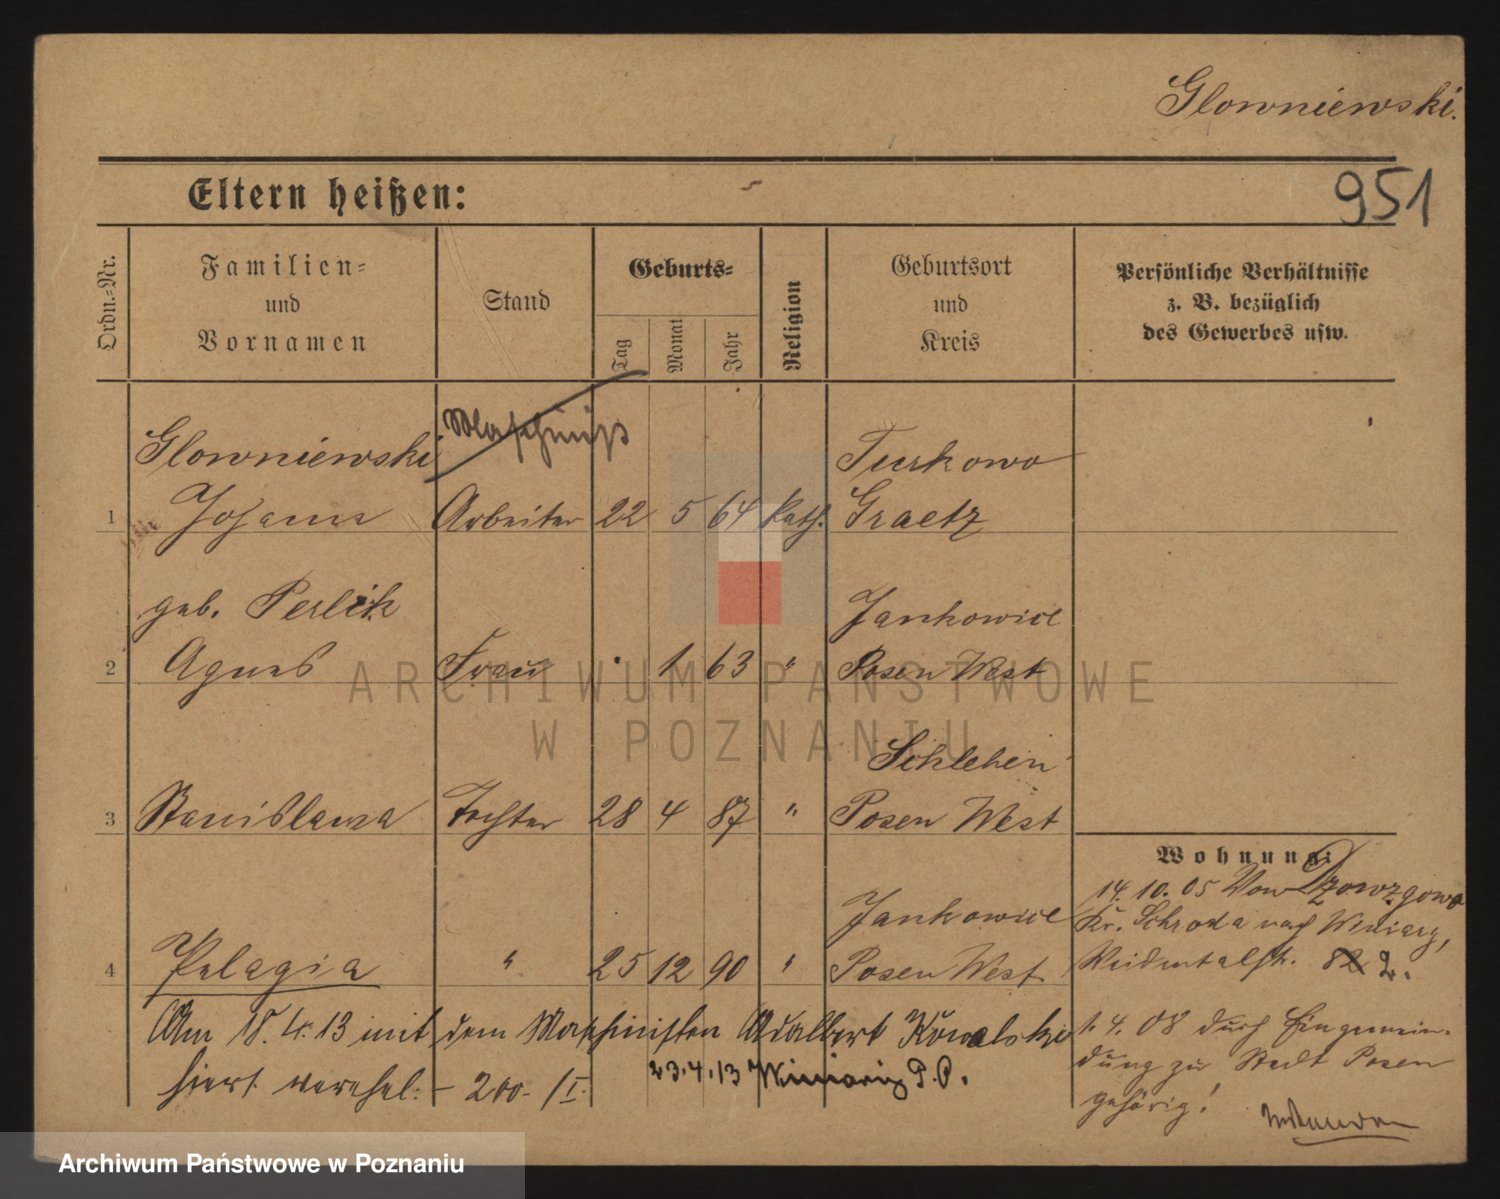 Glowniewski.
Eltern heißen:
951
Ordn.-Nr.
Familien-
und
Vornamen
Stand
Geburts-
Tag
Monat
Jahr
Religion
Geburtsort
und
Kreis
Persönliche Verhältnisse
z. B. bezüglich
des Gewerbes usw.
Glowniewski Maschinist Turkowo
1 Johann Arbeiter 22 5 64 kath. Graetz
geb. Perlik Jankowice
2 Agnes Frau . 1 63 " Posen West
Schlehen
3 Stanislawa Tochter 28 4 87 " Posen West
Jankowice
4 Pelagia " 25 12 90 " Posen West
Am 18.4.13 mit dem Maschinisten Adalbert Kowalski
hiert verehel. - 200. /I.
23.4.13 Winiary P.P.
Wohnung:
14.10.05 Von
Kr. Schroda nach Winiary,
Weidentalstr. 82 2.
1.4.08 durch Eingemein-
dung zu Stadt Posen
gehörig!
ARCHIWUM PAŃSTWOWE
W POZNANIU
Archiwum Państwowe w Poznaniu